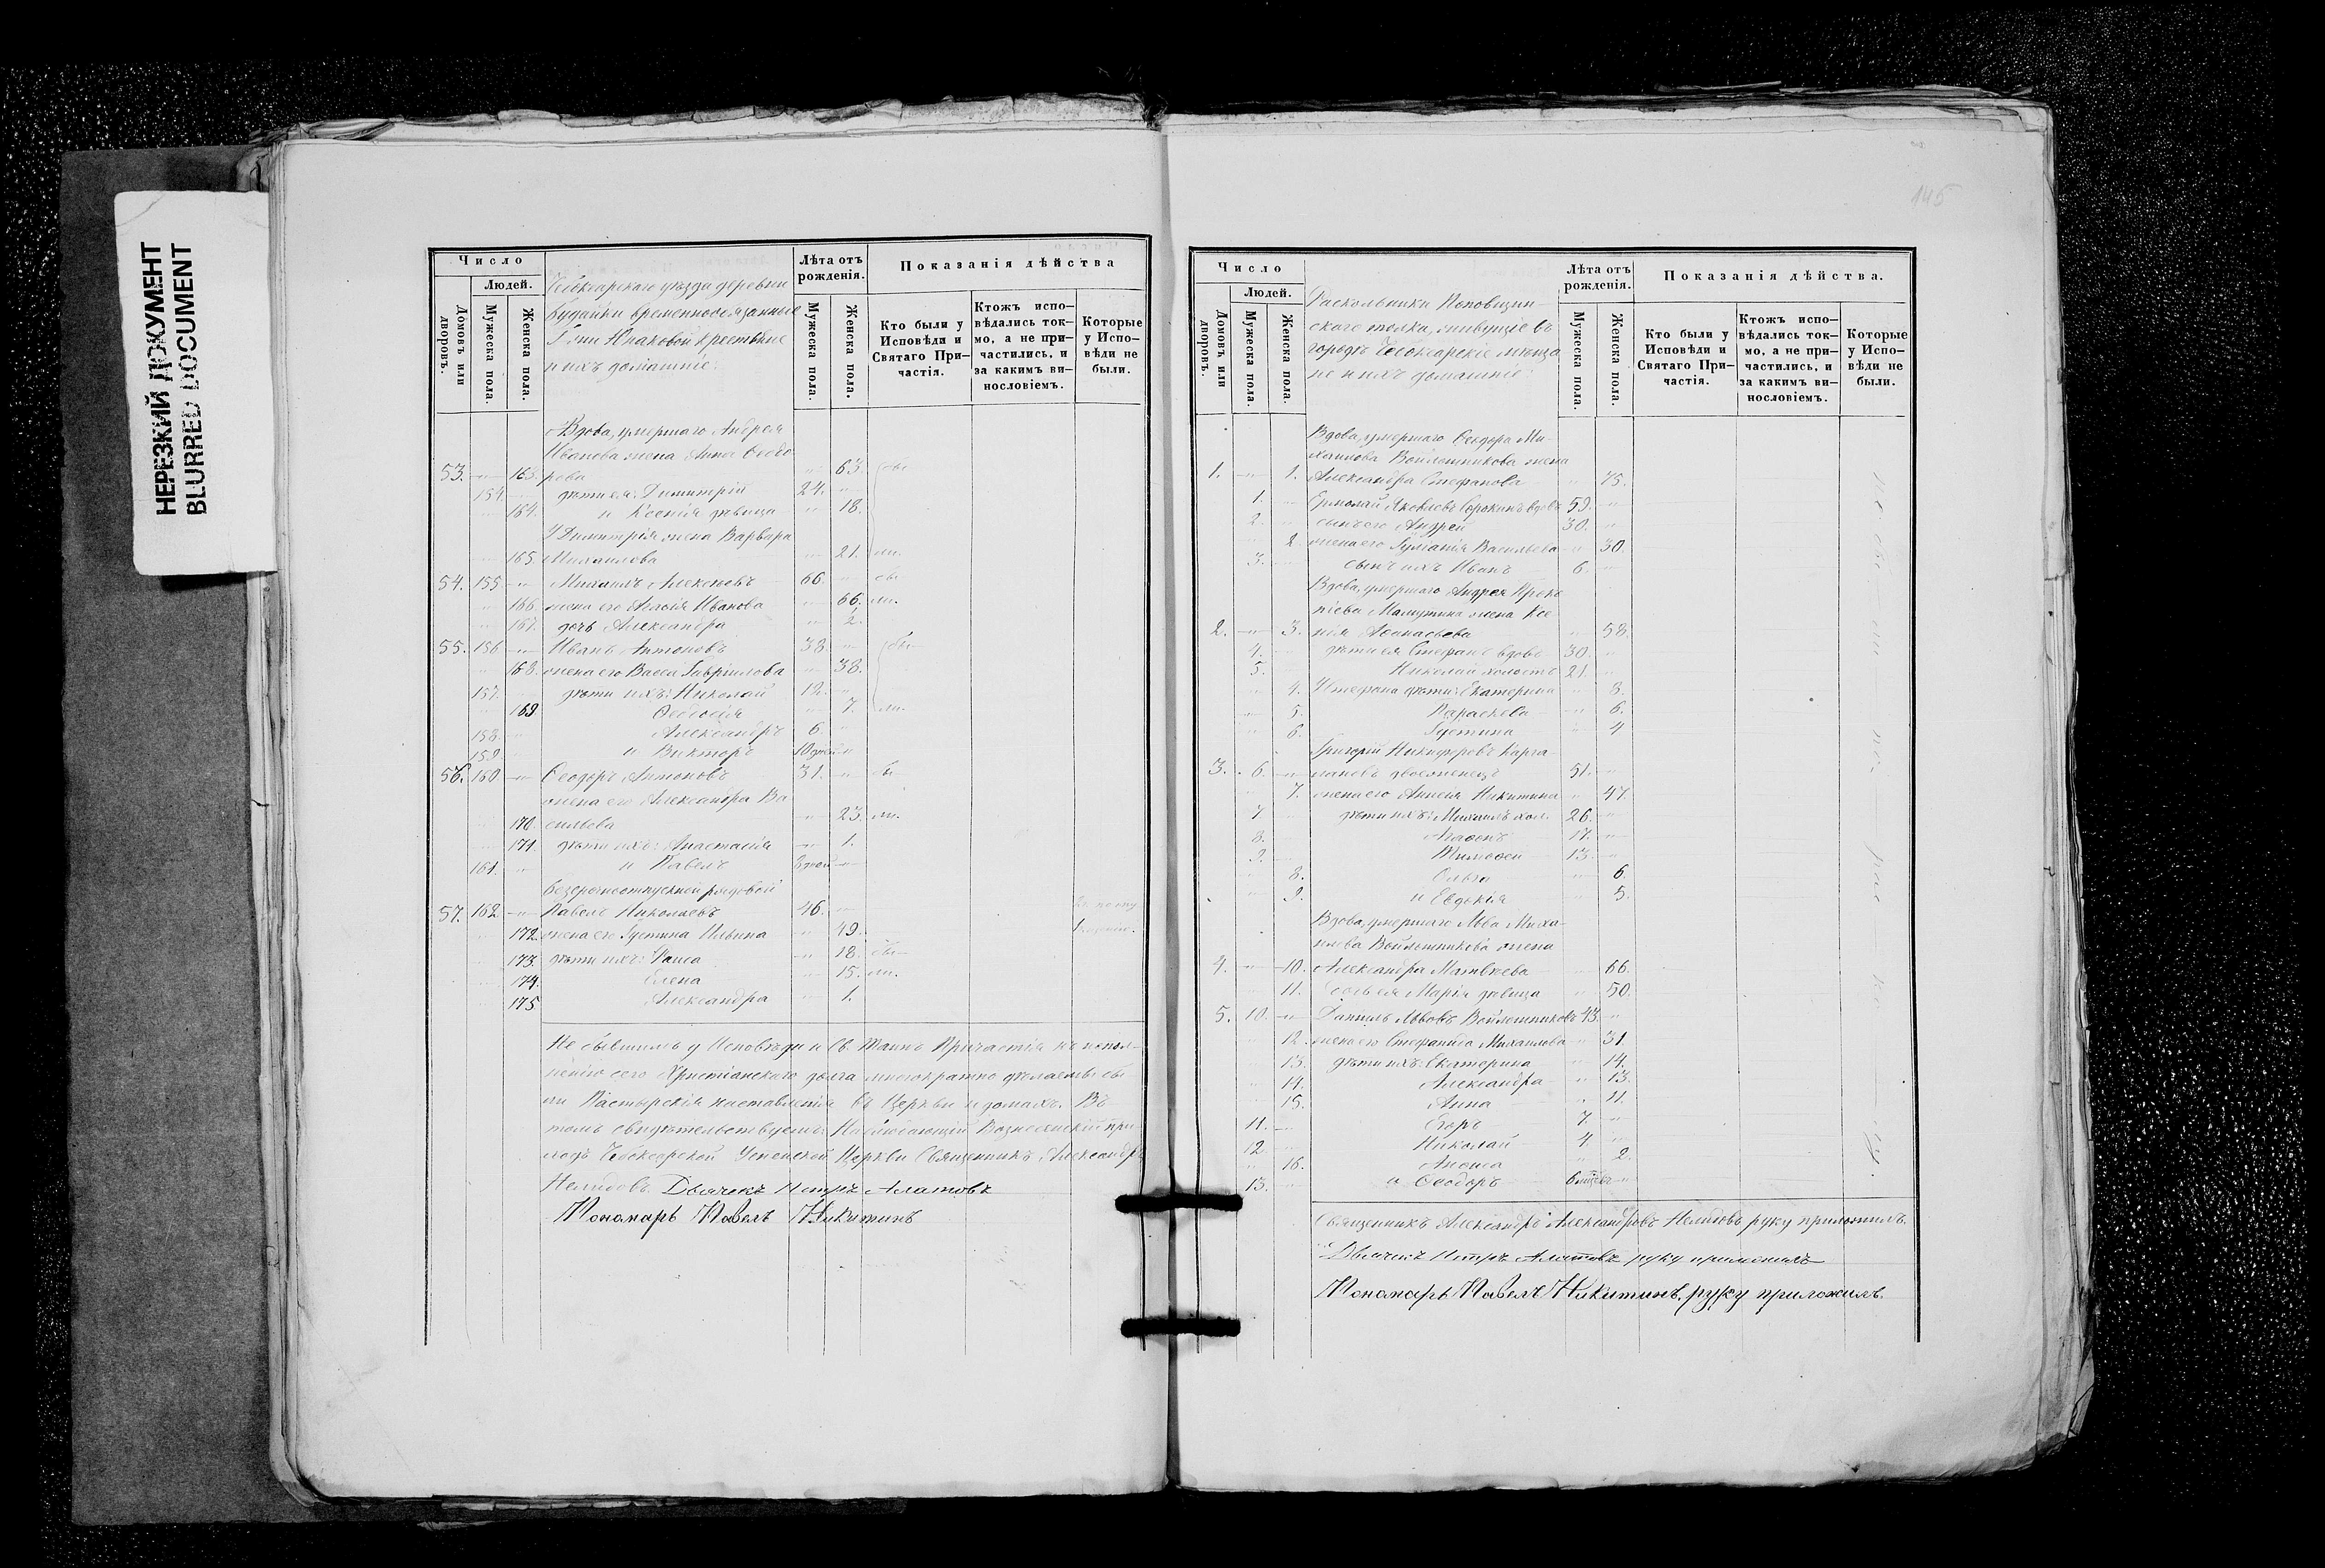 НЕРЕЗКИЙ ДОКУМЕНТ
BLURRED DOCUMENT
Число
Людей.
Домовъ или дворовъ.
Мужеска пола.
Женска пола.
Чебоксарскаго уѣзда деревни
Будайки временнообязанные
крестьяне
и ихъ домашніе:
Лѣта отъ рожденія.
Мужеска пола.
Женска пола.
Показанія дѣйства
Кто были у Исповѣди и Святаго При-частія.
Ктожъ испо-вѣдались ток-мо, а не при-частились, и за какимъ ви-нословіемъ.
Которые у Испо-вѣди не были.
Вдова, умершаго Андрея
Иванова жена Анна Ѳеодо
53. 163. рова 63. бы
154. дѣти ея: Димитрій 24.
164. и Ксенія дѣвица 18.
У Димитрія жена Варвара
165. Михаилова 21. ли.
54. 155 Михаилъ Алексѣевъ 66. бы
166. жена его Агаѳія Иванова 66. ли.
167. дочь Александра 2.
55. 156 Иванъ Антоновъ 38. бы
168. жена его Васса Гавріилова 38.
157. дѣти ихъ: Николай 12.
169 Ѳеодосія 7. ли.
158. Александръ 6.
159. и Викторъ 10 дней
56. 160 Ѳеодоръ Антоновъ 31. бы
жена его Александра Ва
170. сильева 23. ли.
171. дѣти ихъ: Анастасія 1.
161. и Павелъ
Безсрочноотпускной рядовой
57. 162 Павелъ Николаевъ 46.
172. жена его Іустина Ильина 49.
173. дѣти ихъ: Раиса 18. бы
174. Елена 15. ли.
175 Александра 1.
Не бывшимъ у Исповѣди и Св. Таинъ Причастія къ испол-
ненію сего Христіанскаго долга многократно дѣлаемы бы
ли Пастырскія наставленія въ Церкви и домахъ. Въ
томъ свидѣтельствуемъ: Наблюдающій Вознесенскій при-
ходъ Чебоксарской Успенской Церкви Священникъ Александръ
Нелидовъ. Дьячекъ Петръ Алатовъ
Пономарь Павелъ Никитинъ
145
Число
Людей.
Домовъ или дворовъ.
Мужеска пола.
Женска пола.
Раскольники Поповщин-
скаго толка, живущіе въ
городѣ Чебоксарскіе мѣща
не и ихъ домашніе:
Лѣта отъ рожденія.
Мужеска пола.
Женска пола.
Показанія дѣйства.
Кто были у Исповѣди и Святаго При-частія.
Ктожъ испо-вѣдались ток-мо, а не при-частились, и за какимъ ви-нословіемъ.
Которые у Испо-вѣди не были.
Вдова, умершаго Ѳеодора Ми-
хаилова Войлошникова жена
1. 1. Александра Стефанова 75.
1. Ермолай Яковлевъ Сорокинъ вдовъ 59.
2. сынъ его Андрей 30.
2 жена его Іуліанія Васильева 30.
3. сынъ ихъ Иванъ 6.
Вдова, умершаго Андрея Проко
піева Мамутина жена Ксе
2. 3. нія Аѳанасьева 58.
4. дѣти ея Стефанъ вдовъ 30.
5. Николай холостъ 21.
4. У Стефана дѣти: Екатерина 8.
5. Параскева 6.
6. Іустина 4
Григорій Никифоровъ Карга-
3. 6. 51.
7. жена его Анисія Никитина 47.
7 дѣти ихъ: Михаилъ хол. 26.
8. Агаѳонъ 17.
9. Тимоѳей 13.
8. Ольга 6.
9. и Евдокія 5.
Вдова, умершаго Льва Миха-
илова Войлошникова жена
4. 10. Александра Матвѣева 66.
11. Марія дѣвица 50.
5. 10. Даніилъ Львовъ Войлошниковъ 43.
12. жена его Стефанида Михаилова 31.
13. дѣти ихъ: Екатерина 14.
14. Александра 13.
15. Анна 11.
11. Егоръ 7.
12 Николай 4.
16. Анѳиса 2.
13. и Ѳеодоръ
Священникъ Александръ Александровъ Нелидовъ руку приложилъ.
Дьячекъ Петръ Алатовъ руку приложилъ
Пономарь Павелъ Никитинъ, руку приложилъ.